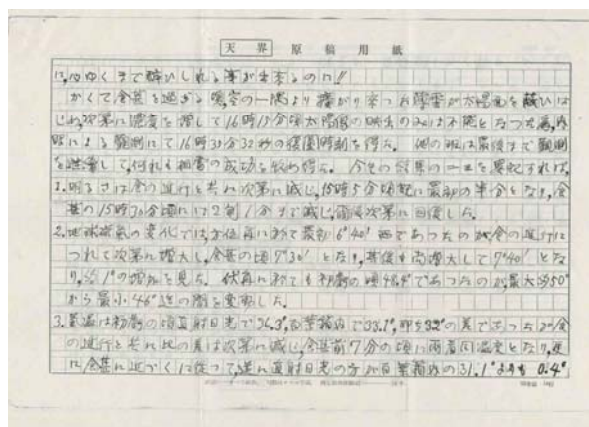 天界 原稿用紙
に,心ゆくまで酔ひしれる事が出来るのに!!
かくて食甚を過ぎる 晴空の一隅より擴がり来つた 雲が太陽面を蔽ひは
じめ,次第に濃度を増して16時15分頃太陽像の映出のみは不能となつた為,肉
眼による観測にて16時33分32秒の復圓時刻を得た。 他の班は最後まで観測
を 續して,何れも 成功を收め得た。 今その結果の一二を 記すれば,
1.明るさは食の進行と共に次第に減じ,15時5分頃既に最初の半分となり,食
甚の15時30分頃には2割1分まで減じ,爾後次第に回復した。
2.地球磁気の変化では,方位角に於て最初6°40′ であつたのが食の進行に
つれて次第に増大し,食甚の頃7°30′ となり,其後も尚増大して7°40′ とな
り,約1°の増加を見た。 伏角に於ても初虧の頃48.4°であつたのが,最大 50°
から最小46° の間を変動した。
3.気温は初虧の頃直射日光で36.3°,百葉箱内で33.1°,即ち3.2°の差であつたが食
の進行と共に此の差は次第に減じ,食甚前7分の頃に両者同温度となり,更
に食甚に近づくに従つて,逆に直射日光の方が百葉箱内の31.1°よりも 0.4°